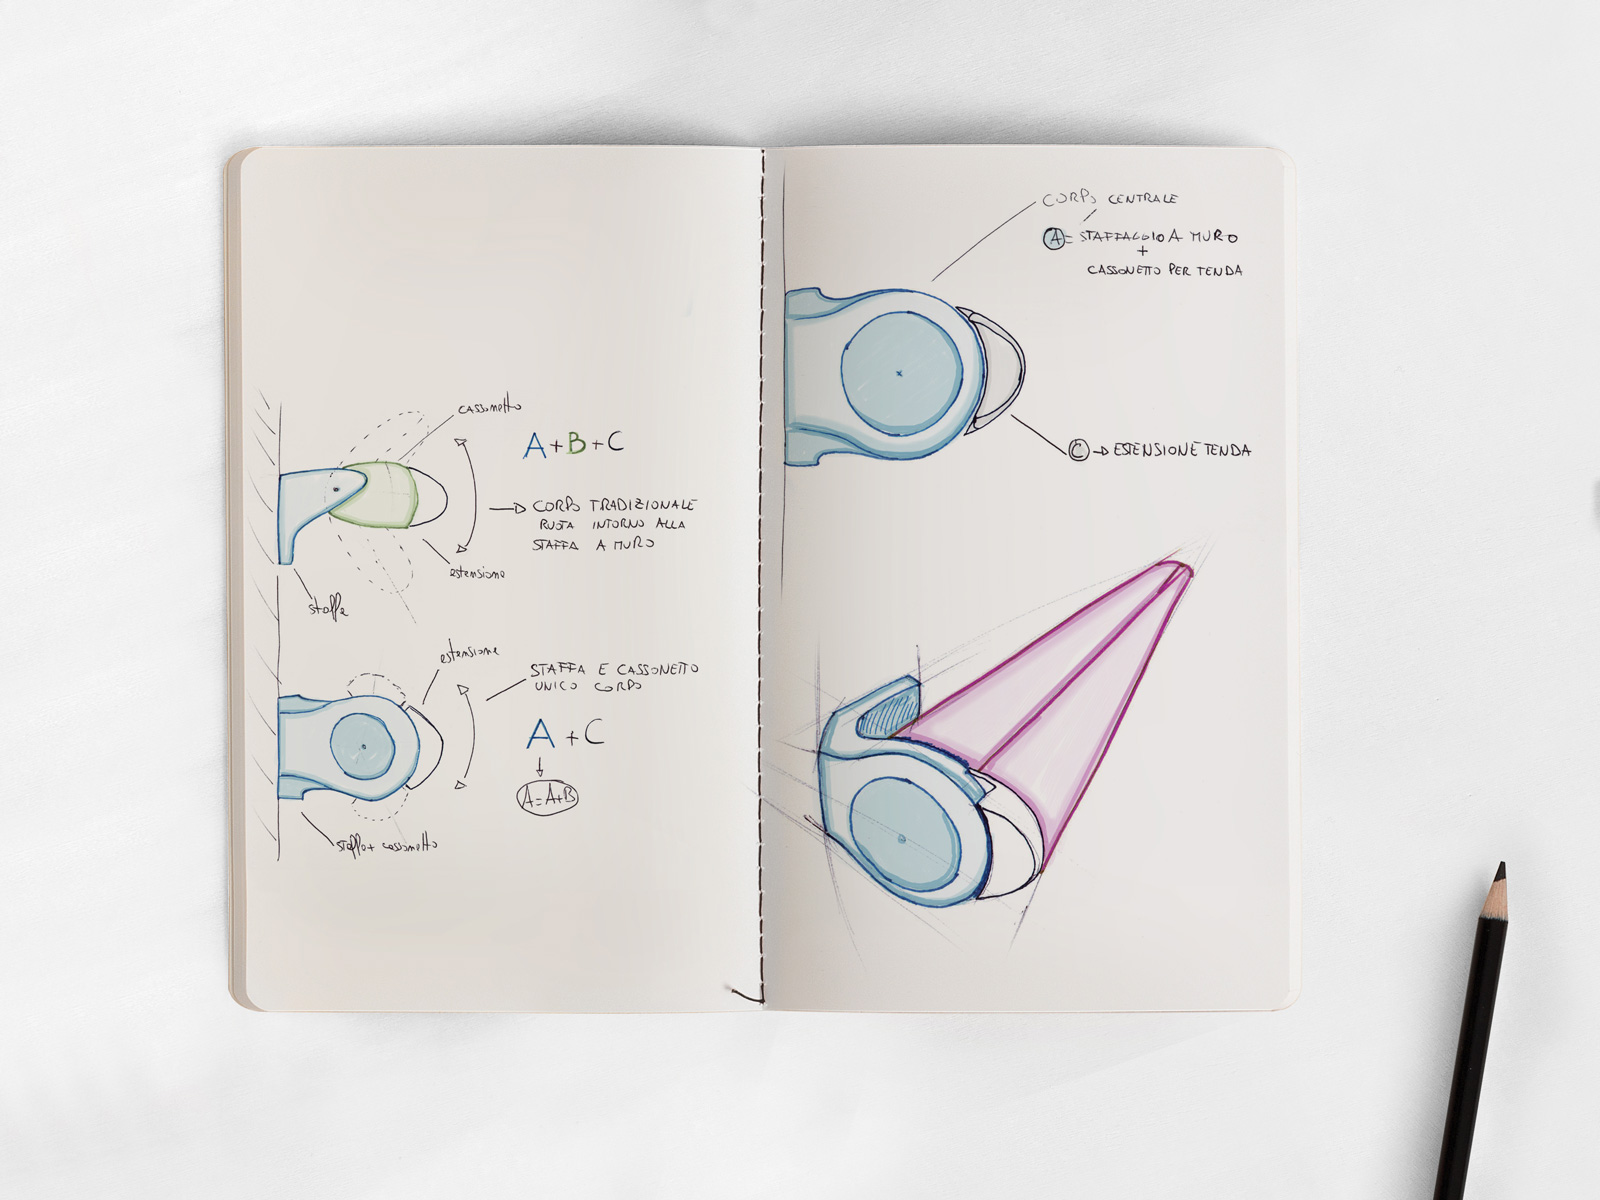 cassonetto
A+B+C
CORPO TRADIZIONALE
RUOTA INTORNO ALLA
STAFFA A MURO
estensione
staffa
estensione
STAFFA E CASSONETTO
UNICO CORPO
A+C
A=A+B
staffa+ cassonetto
CORPO CENTRALE
A = STAFFAGGIO A MURO
+
CASSONETTO PER TENDA
C → ESTENSIONE TENDA